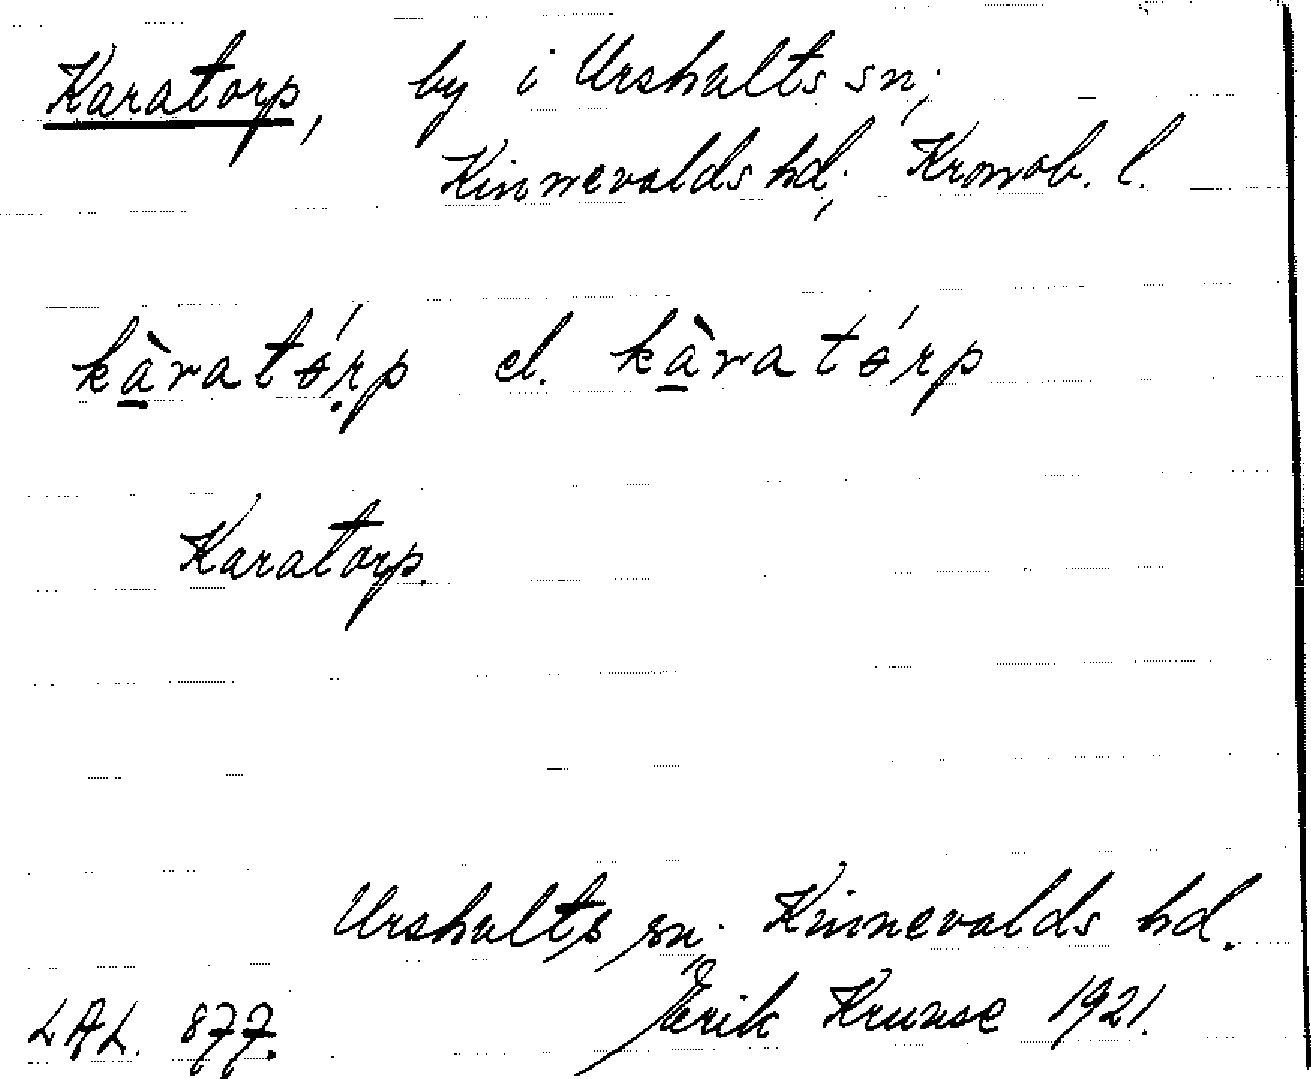 Karatorp, by i Urshults sn;
Kinnevalds hd; Kronob. l.
kàratórp el. kàratórp
Karatorp.
Urshults sn; Kinnevalds hd.
LAL. 877. Erik Kruuse 1921.